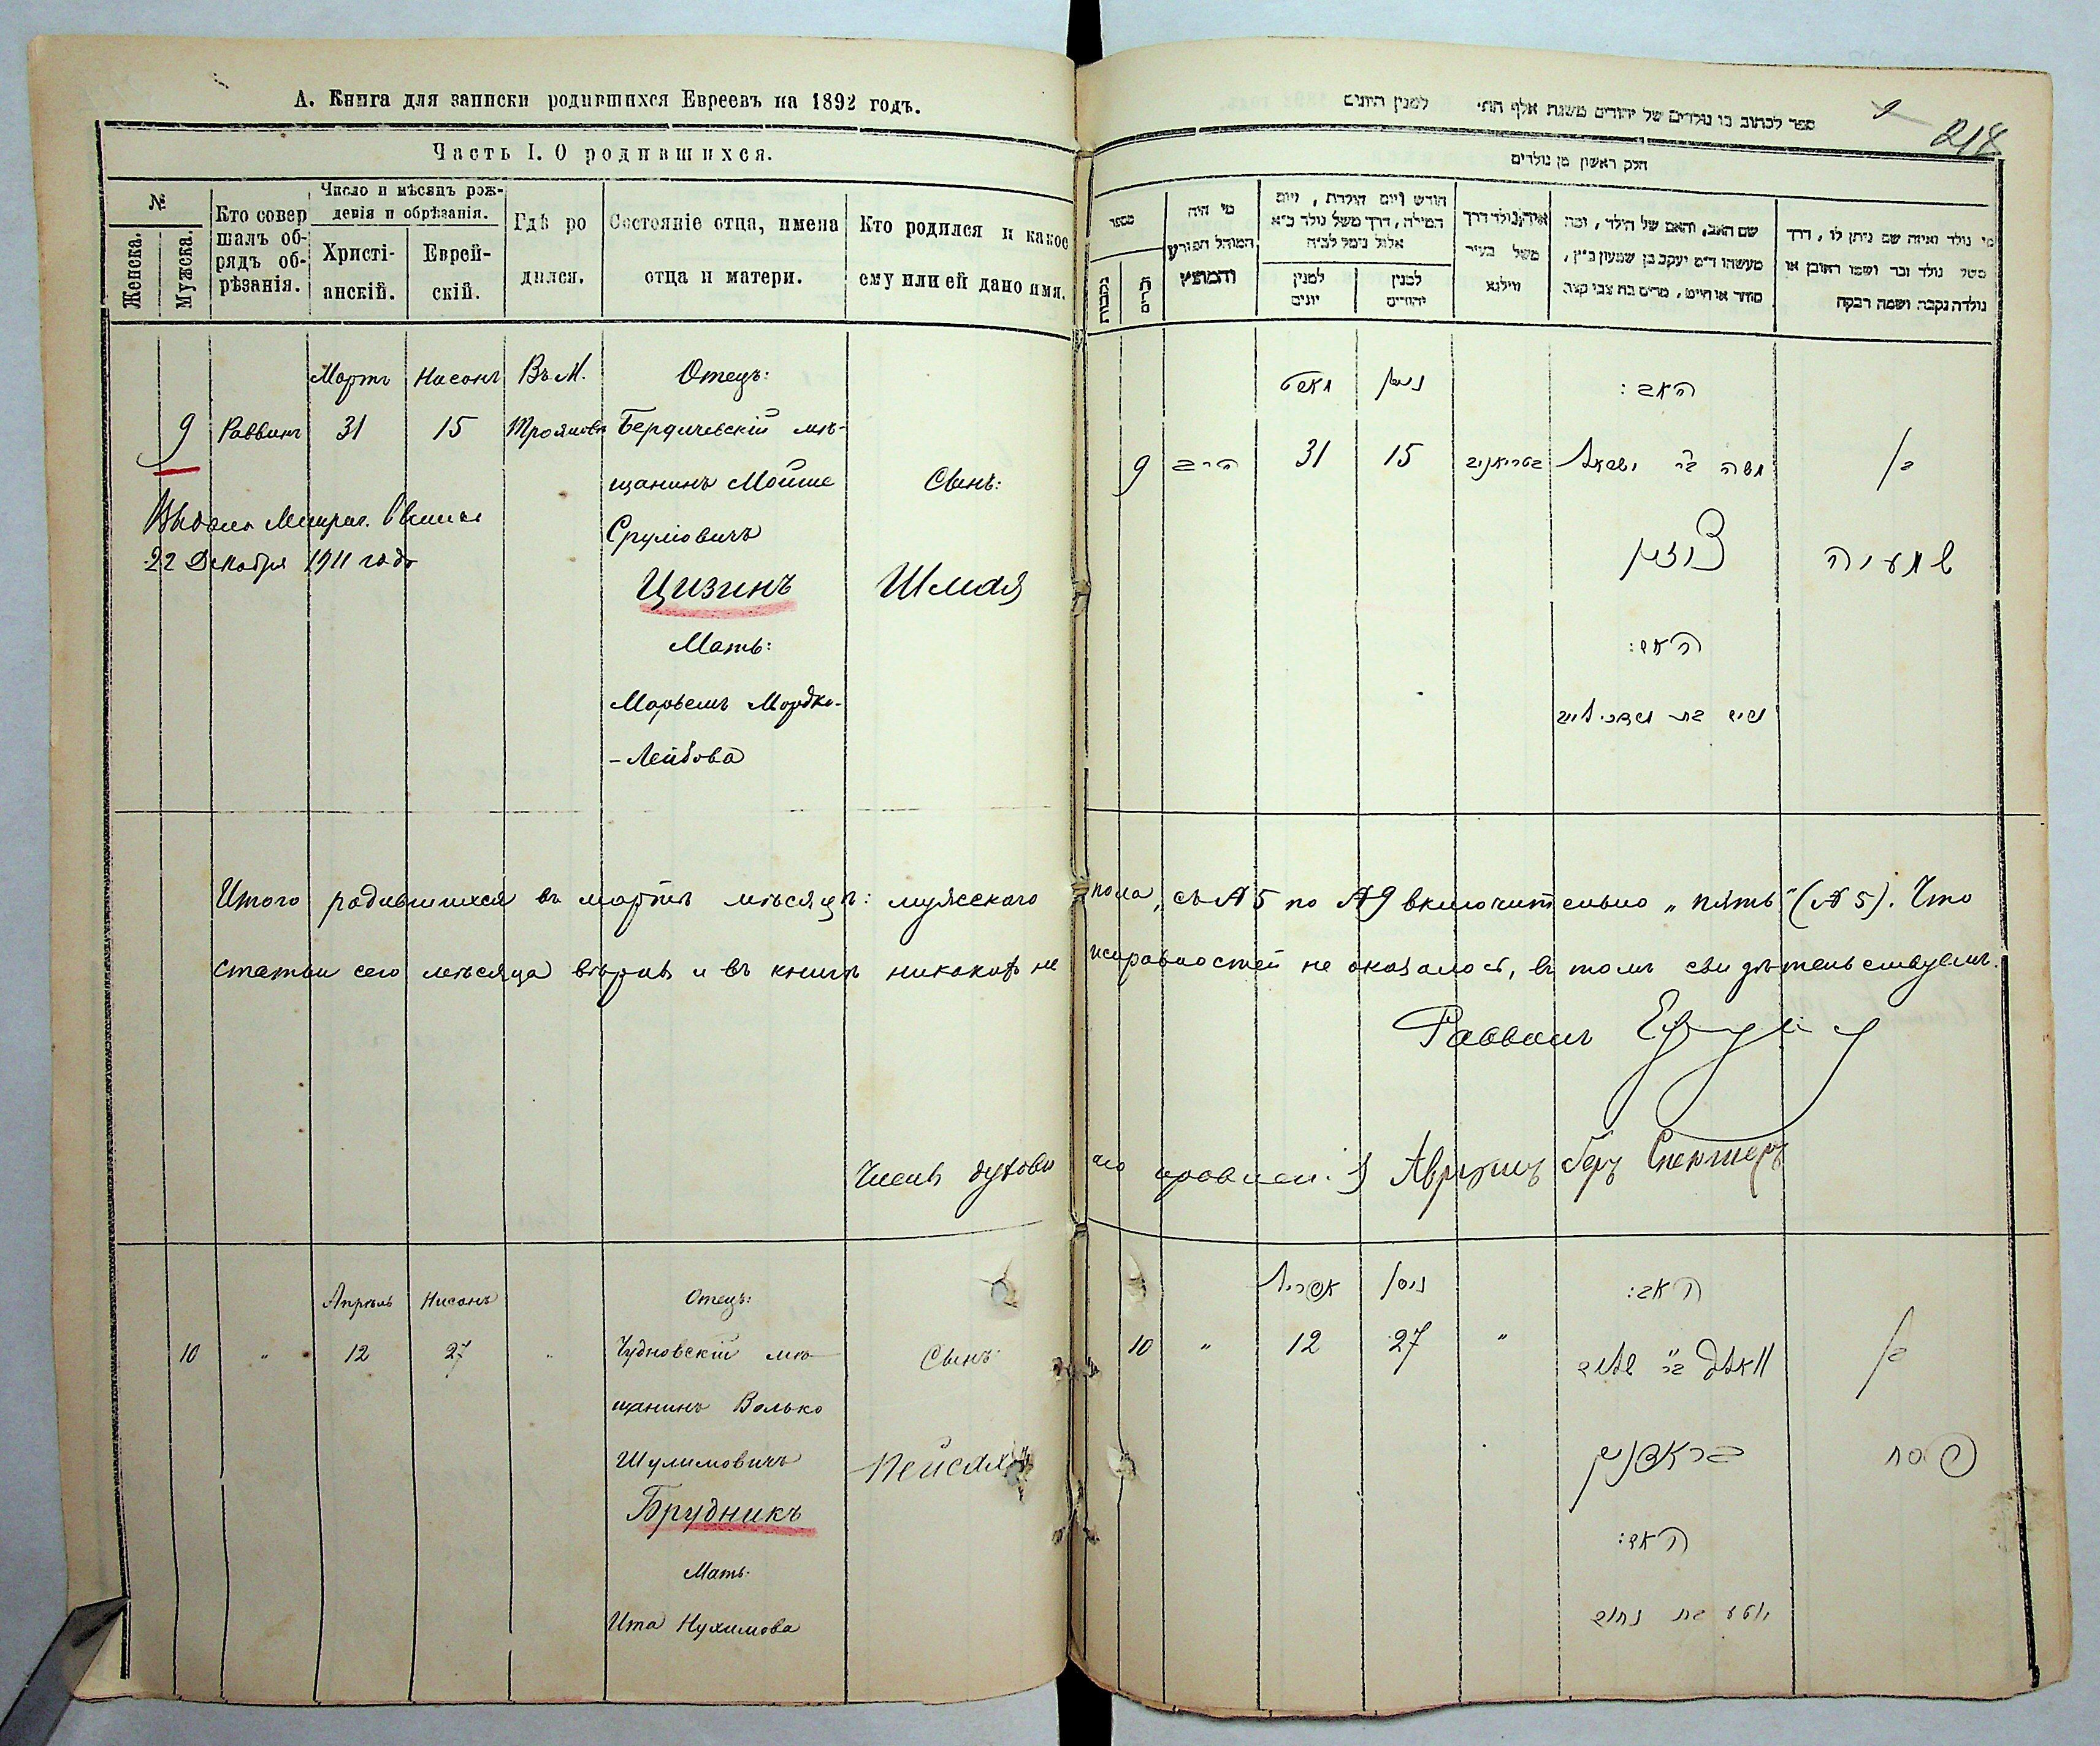 А. Книга для записки родившихся Евреевъ на 1892 годъ.
Часть I. О родившихся.
№
Женска.
Мужска.
Кто совер
шалъ об-
рядъ об-
рѣзанія.
Число и мѣсяцъ рож-
денія и обрѣзанія.
Христі-
анскій.
Еврей-
скій.
Гдѣ ро
дился.
Состояніе отца, имена
отца и матери.
Кто родился и какое
ему или ей дано имя.
Мартъ Нисонъ Въ М. Отецъ:
9 Раввинъ 31 15 Трояновѣ Бердичевскій мѣ-
щанинъ Мойше
Сынъ:
Сруліовичъ
Цизинъ
Шмая
Мать:
Марьемъ Мордко-
-Лейбова
22 Декабря 1911 года
Итого родившихся въ мартѣ мѣсяцѣ: мужескаго пола, съ № 5 по № 9 включительно „пять" (№ 5). Что
статьи сего мѣсяца вѣрны и въ книгѣ никакихъ не исправностей не оказалось, въ томъ свидѣтельствуемъ.
Раввинъ
Членъ духовнаго правлен.
Апрѣль Нисонъ Отецъ:
10 " 12 27 " Чудновскій мѣ-
щанинъ Волько
Сынъ:
Шулимовичъ
Пейсахъ
Брудникъ
Мать:
Ита Нухимова
ספר לכתוב בו נולדים של יהודים משנת אלף תתי למנין היונים
218
חלק ראשון מן נולדים
מספר
נקבות
זכרים
מי היה
המוהל הפורע
והמוצץ
חודש ויום הולדת, ויום
המילה, דרך משל נולד כ״א
אלול נימל לב״ה
למנין
יונים
למנין
יהודים
איה נולד דרך
משל בעיר
ווילנא
שם האב, והאם של הילד, ומה
מעשהו ד״מ יעקב בן שמעון כ״ץ,
סוחר או חייט, מרים בת צבי קצב
מי נולד ואיזה שם ניתן לו, דרך
משל נולד זכר ושמו ראובן או
נולדה נקבה ושמה רבקה
מארט ניסן האב:
9 הרב 31 15 בטריאניב משה בר ישראל בן
ציזין שמעיה
האם:
מרים בת מרדכי ליב
אפריל ניסן האב:
10 " 12 27 " וואלקא בר שלום בן
בראדניק פסח
האם:
איטא בת נחום